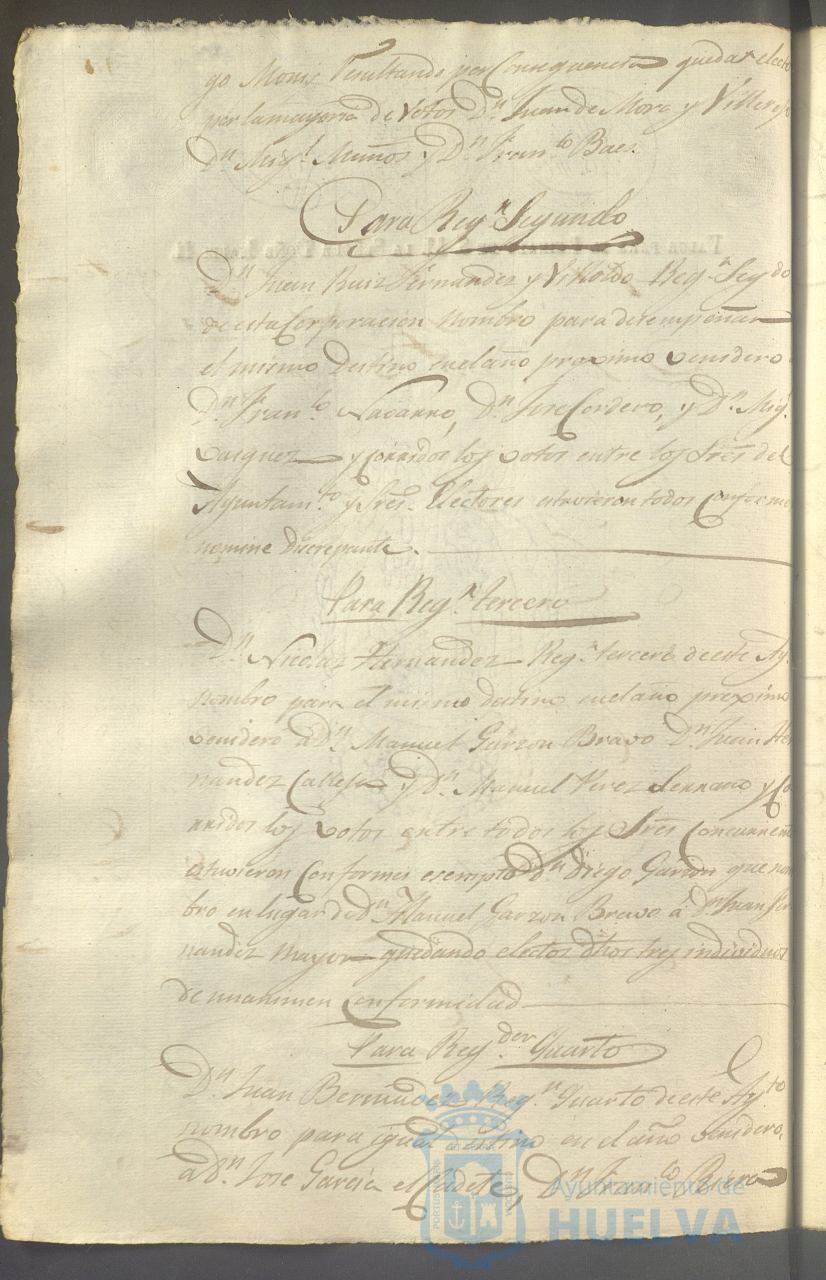 go Moris Resultando por Consequencia quedar electo
por la mayoria de Votos Dn. Juan de Mora y Villerejo
Dn. Migl. Muños y Dn. Franco. Baes.
Para Regr. Segundo
Dn. Juan Ruiz Fernandez y Villoldo Regr. Segdo
de esta Corporacion nombro para desempeñar
el mismo Destino en el año proximo venidero
Dn. Franco. Navarro, Dn. Jose Cordero, y Dn. Migl.
Vasquez y Corridos los votos entre los Sres del
Ayuntamto. y Sres. Electores estuvieron todos Conformes
nemine discrepante.
Para Regr. tercero
Dn. Nicolas Hernandez Regr. tercero de este Ay.
nombro para el mismo destino en el año proximo
venidero a Dn. Manuel Garzon Bravo Dn. Juan Her
nandez Calleja y Dn. Manuel Perez Serrano y Co
rridos los votos entre todos los Sres Concurrentes
estuvieron Conformes esempto Dn. Diego Garzon que nom
bro en lugar de Dn. Manuel Garzon Bravo á Dn. Juan Fer
nandez mayor quedando electos dhos tres individuos
de unanimen Conformidad
Para Regdor. Quarto
Dn. Juan Bermudez Regr. Quarto de este Aytto
nombro para igual destino en el año venidero,
a Dn. Jose Garcia el Cadete, Dn. Franco. Rivera
Ayuntamiento de
HUELVA